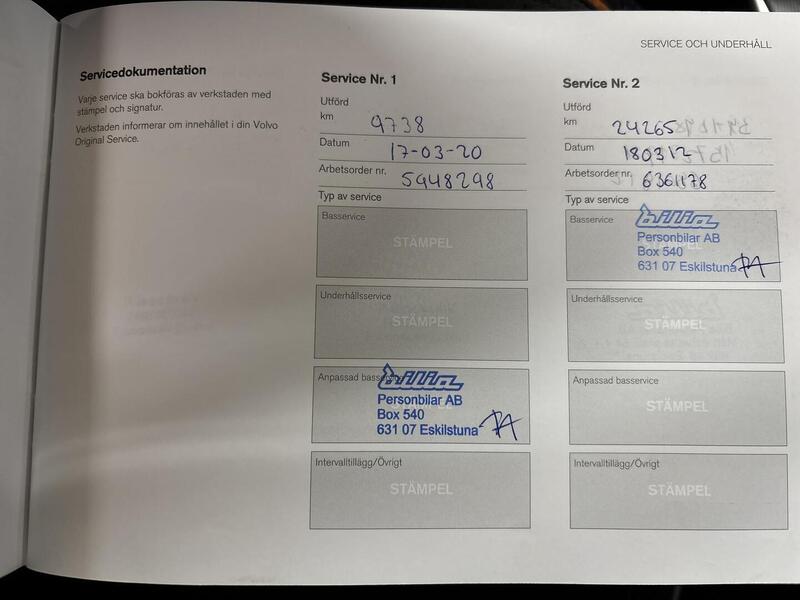 SERVICE OCH UNDERHÅLL
Servicedokumentation
Varje service ska bokföras av verkstaden med
stämpel och signatur.
Verkstaden informerar om innehållet i din Volvo
Original Service.
Service Nr. 1
Utförd
km 9738
Datum 17-03-20
Arbetsorder nr. 5948298
Typ av service
Basservice
STÄMPEL
Underhållsservice
STÄMPEL
Anpassad basservice
billia
Personbilar AB
Box 540
631 07 Eskilstuna
Intervalltillägg/Övrigt
STÄMPEL
Service Nr. 2
Utförd
km 24265
Datum 180312
Arbetsorder nr. 6361178
Typ av service
Basservice
billia
Personbilar AB
Box 540
631 07 Eskilstuna
Underhållsservice
STÄMPEL
Anpassad basservice
STÄMPEL
Intervalltillägg/Övrigt
STÄMPEL